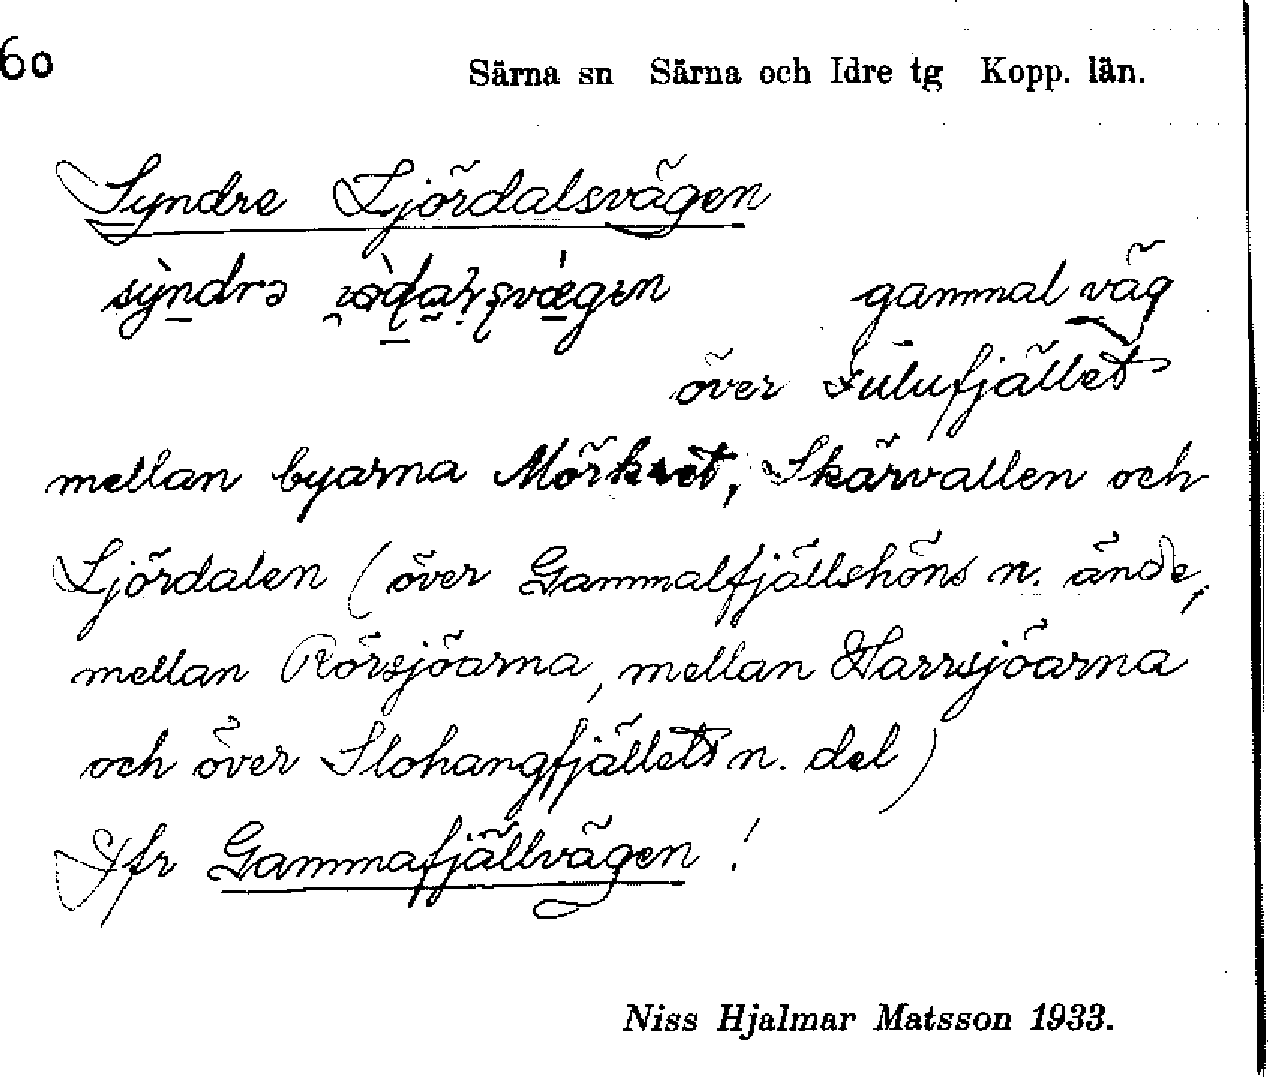 60
Särna sn Särna och Idre tg Kopp. län.
Syndre Ljördalsvägen
sỳndrə
gammal väg
över Fulufjället
mellan byarna Mörkret, Skärvallen och
Ljördalen (över Gammalfjällshöns n. ände,
mellan Rörsjöarna, mellan Harrsjöarna
och över Slohangfjällets n. del)
Jfr Gammafjällvägen !
Niss Hjalmar Matsson 1933.